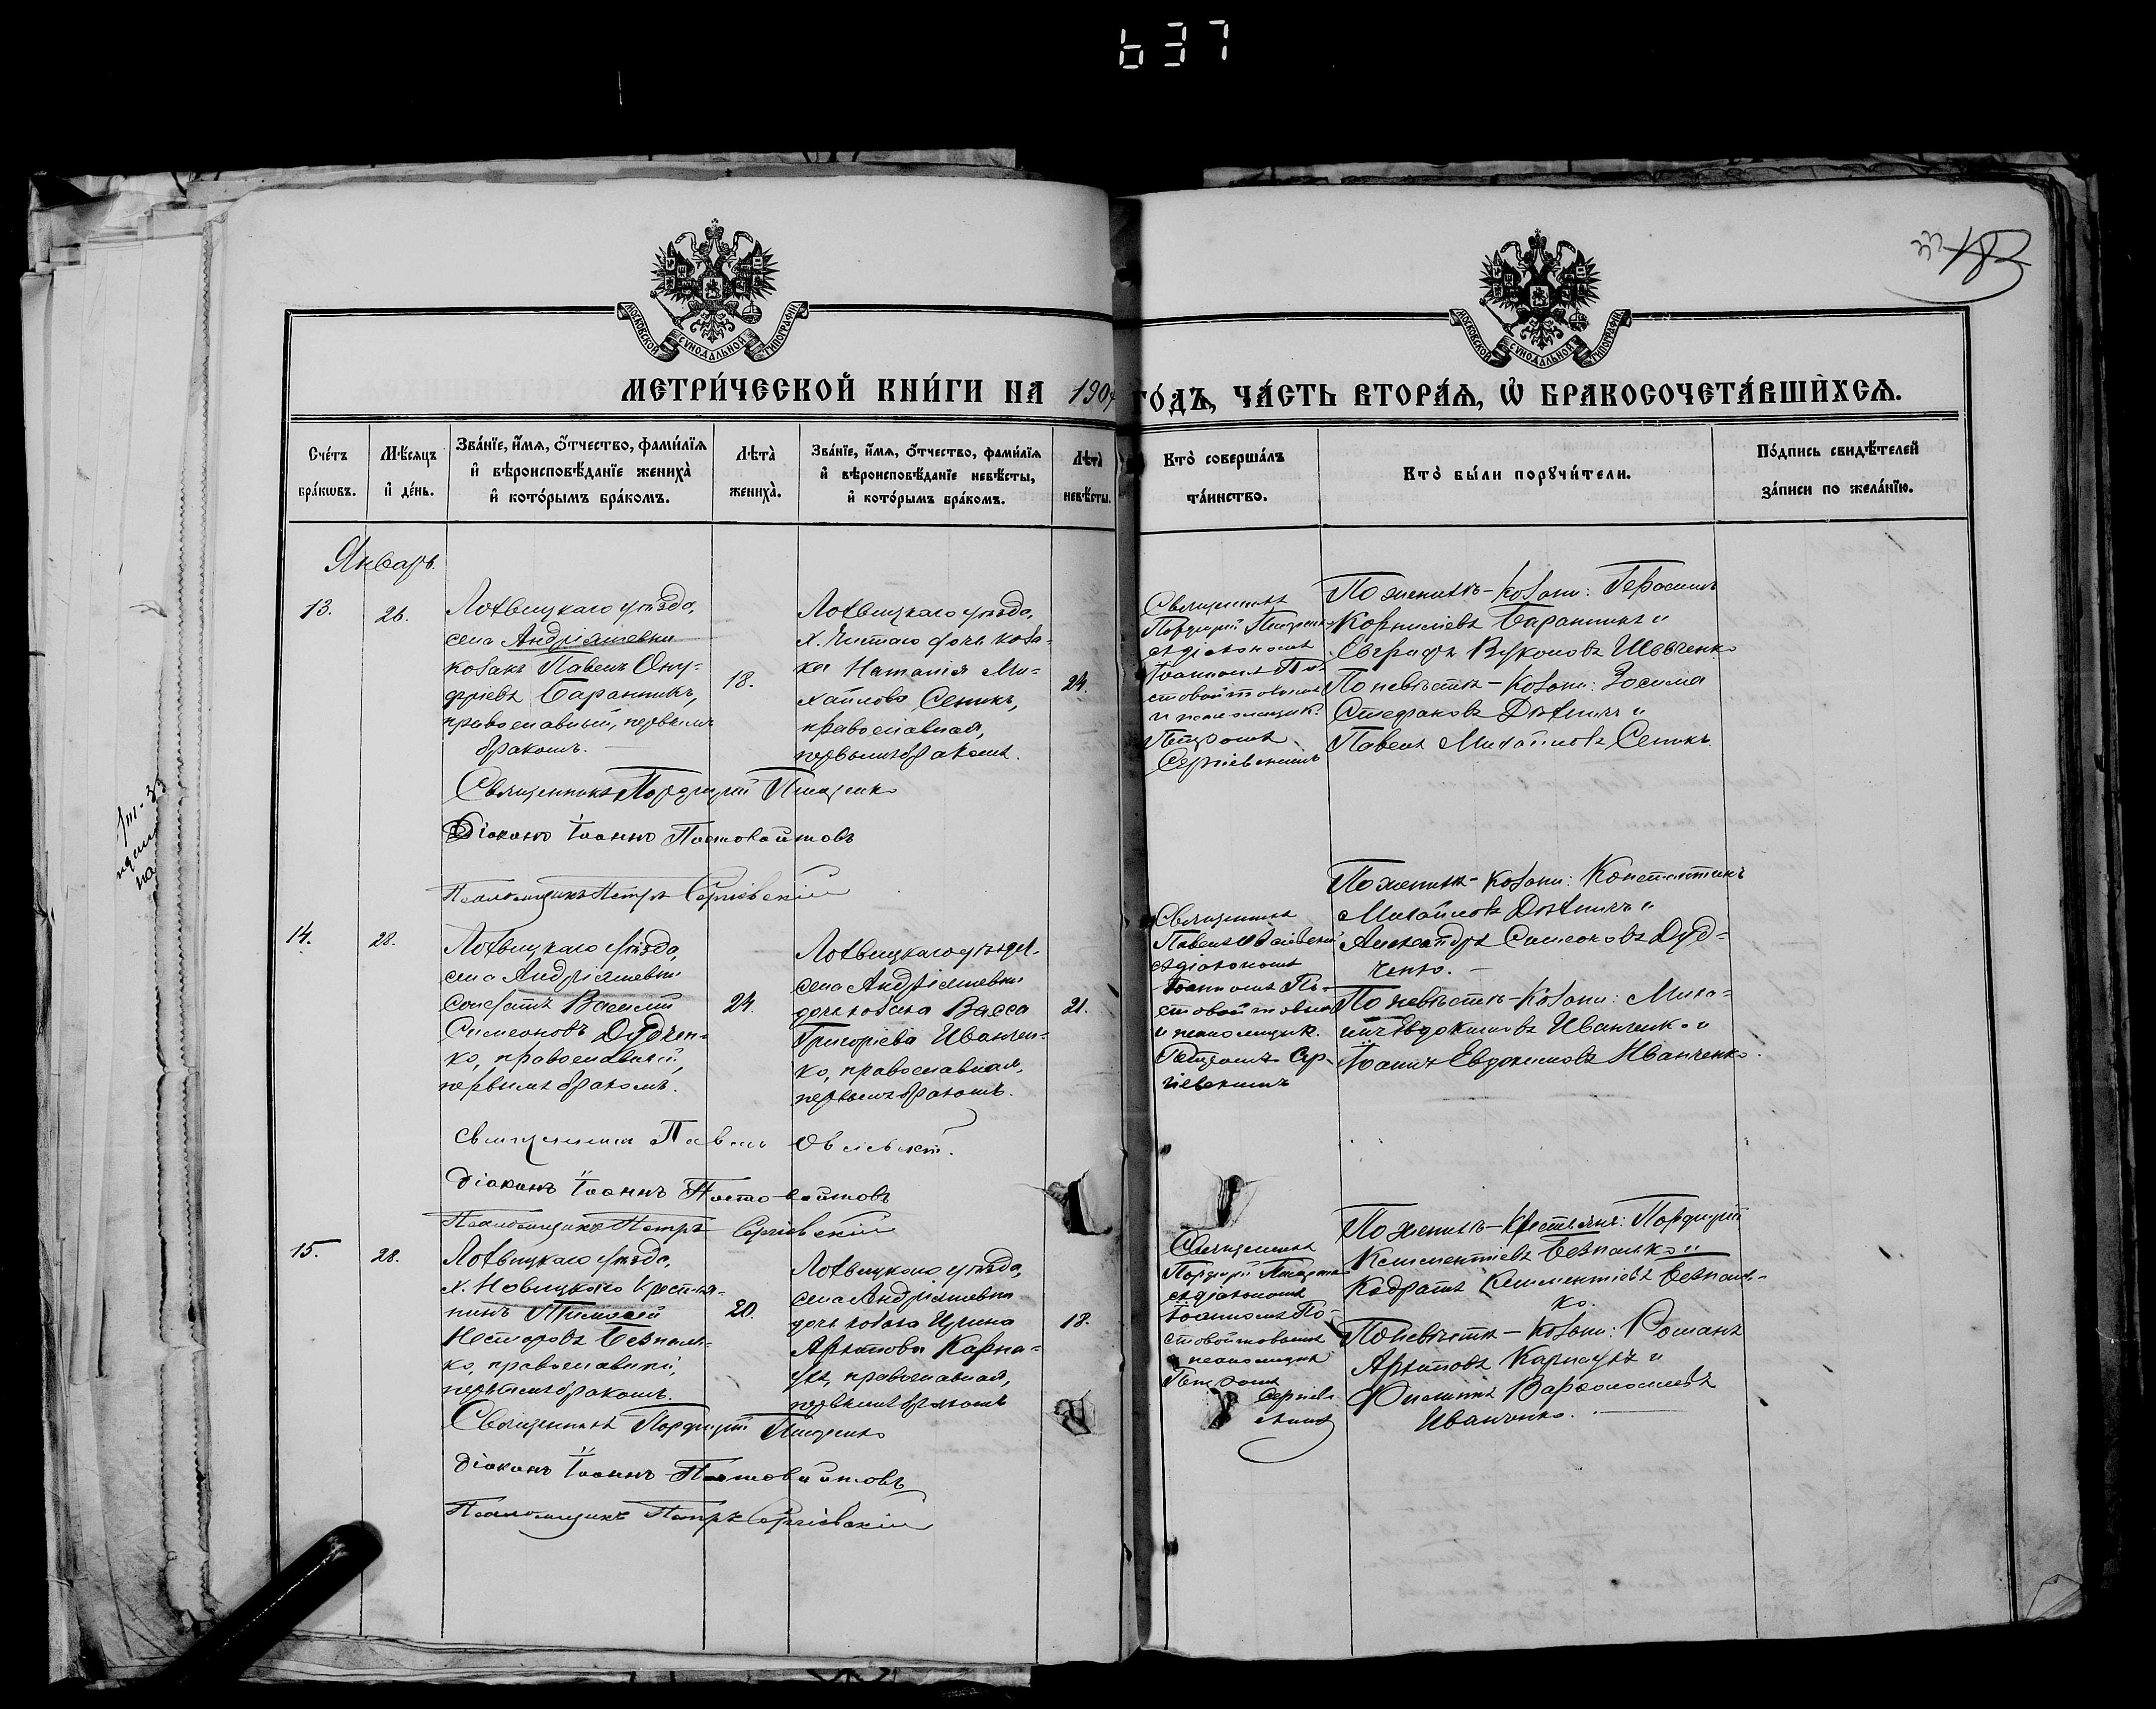 637
183
МОСКОВСКОЙ СѴНОДАЛЬНОЙ ТИПОГРАФІИ
МОСКОВСКОЙ СѴНОДАЛЬНОЙ ТИПОГРАФІИ
МЕТРИ́ЧЕСКОЙ КНИ́ГИ НА 190
ГО́ДЪ, ЧА́СТЬ ВТОРА́Ѧ, Ѽ БРАКОСОЧЕТА́ВШИХСѦ.
Сче́тъ бра́кωвъ.
Мѣ́сяцъ и҆ де́нь.
Зва́нїе, и҆́мя, ѻ҆́тчество, фами́лїя
и҆ вѣроисповѣ́данїе жениха̀
и҆ кото́рымъ бра́комъ.
Лѣта̀ жениха̀.
Зва́нїе, и҆́мя, ѻ҆́тчество, фами́лїя
и҆ вѣроисповѣ́данїе невѣ́сты,
и҆ кото́рымъ бра́комъ.
Лѣта̀ невѣ́сты.
Кто̀ соверша́лъ та́инство.
Кто̀ бы́ли порꙋчи́тели.
По́дпись свидѣ́телей за́писи по жела́нїю.
Январь.
13.
26.
Лохвицкаго уѣзда,
села Андріяшевки
козакъ Павелъ Ону-
фріевъ Баранникъ,
православный, первымъ
бракомъ.
18.
Лохвицкаго уѣзда,
х. Чистаго дочь коза-
ка Наталія Ми-
хайлова Сеникъ,
православная,
первымъ бракомъ.
24.
Священникъ
Порфирій
съ діакономъ
Іоанномъ По-
стовойтовымъ
и псаломщик.
Петромъ
Сергіевскимъ
По женихѣ - козаки: Герасимъ
Корниліевъ Баранникъ и
Шевченко
По невѣстѣ - козаки: Зосима
Стефановъ и
Павелъ Михайловъ Сеникъ.
Священникъ Порфирій
Діаконъ Іоаннъ Постовойтовъ
Псаломщикъ Петръ Сергіевскій
14.
28.
Лохвицкаго уѣзда,
села Андріяшевки
солдатъ Василій
Симеоновъ Дудчен-
ко, православный,
первымъ бракомъ.
24.
Лохвицкаго уѣзда,
села Андріяшевки
дочь козака Васса
Григоріева Иванчен-
ко, православная,
первымъ бракомъ.
21.
Священникъ
Павелъ
съ діакономъ
Іоанномъ По-
стовойтовымъ
и псаломщик.
Петромъ Сер-
гіевскимъ
По женихѣ - козаки: Константинъ
Михайловъ и
Александръ Симеоновъ Дуд-
ченко.
По невѣстѣ - козаки: Миха-
илъ Евдокимовъ Иванченко и
Іоаннъ Евдокимовъ Иванченко.
Священникъ Павелъ
Діаконъ Іоаннъ Постовойтовъ
Псаломщикъ Петръ Сергіевскій
15.
28.
Лохвицкаго уѣзда,
х. Новицкаго крестья-
нинъ Тимофей
Несторовъ Безпаль-
ко, православный,
первымъ бракомъ.
20.
Лохвицкаго уѣзда,
села Андріяшевки
дочь козака Ирина
Архипова Карна-
ухъ, православная,
первымъ бракомъ
18.
Священникъ
Порфирій
съ діакономъ
Іоанномъ По-
стовойтовымъ
и псаломщик
Петромъ
Сергіев-
скимъ
По женихѣ - крестьяне: Порфирій
Климентіевъ Безпалько и
Кодратъ Климентіевъ Безпаль-
ко.
По невѣстѣ - козаки: Романъ
Архиповъ Карнаухъ и
Филиппъ Варфоломеевъ
Иванченко.
Священникъ Порфирій
Діаконъ Іоаннъ Постовойтовъ
Псаломщикъ Петръ Сергіевскій